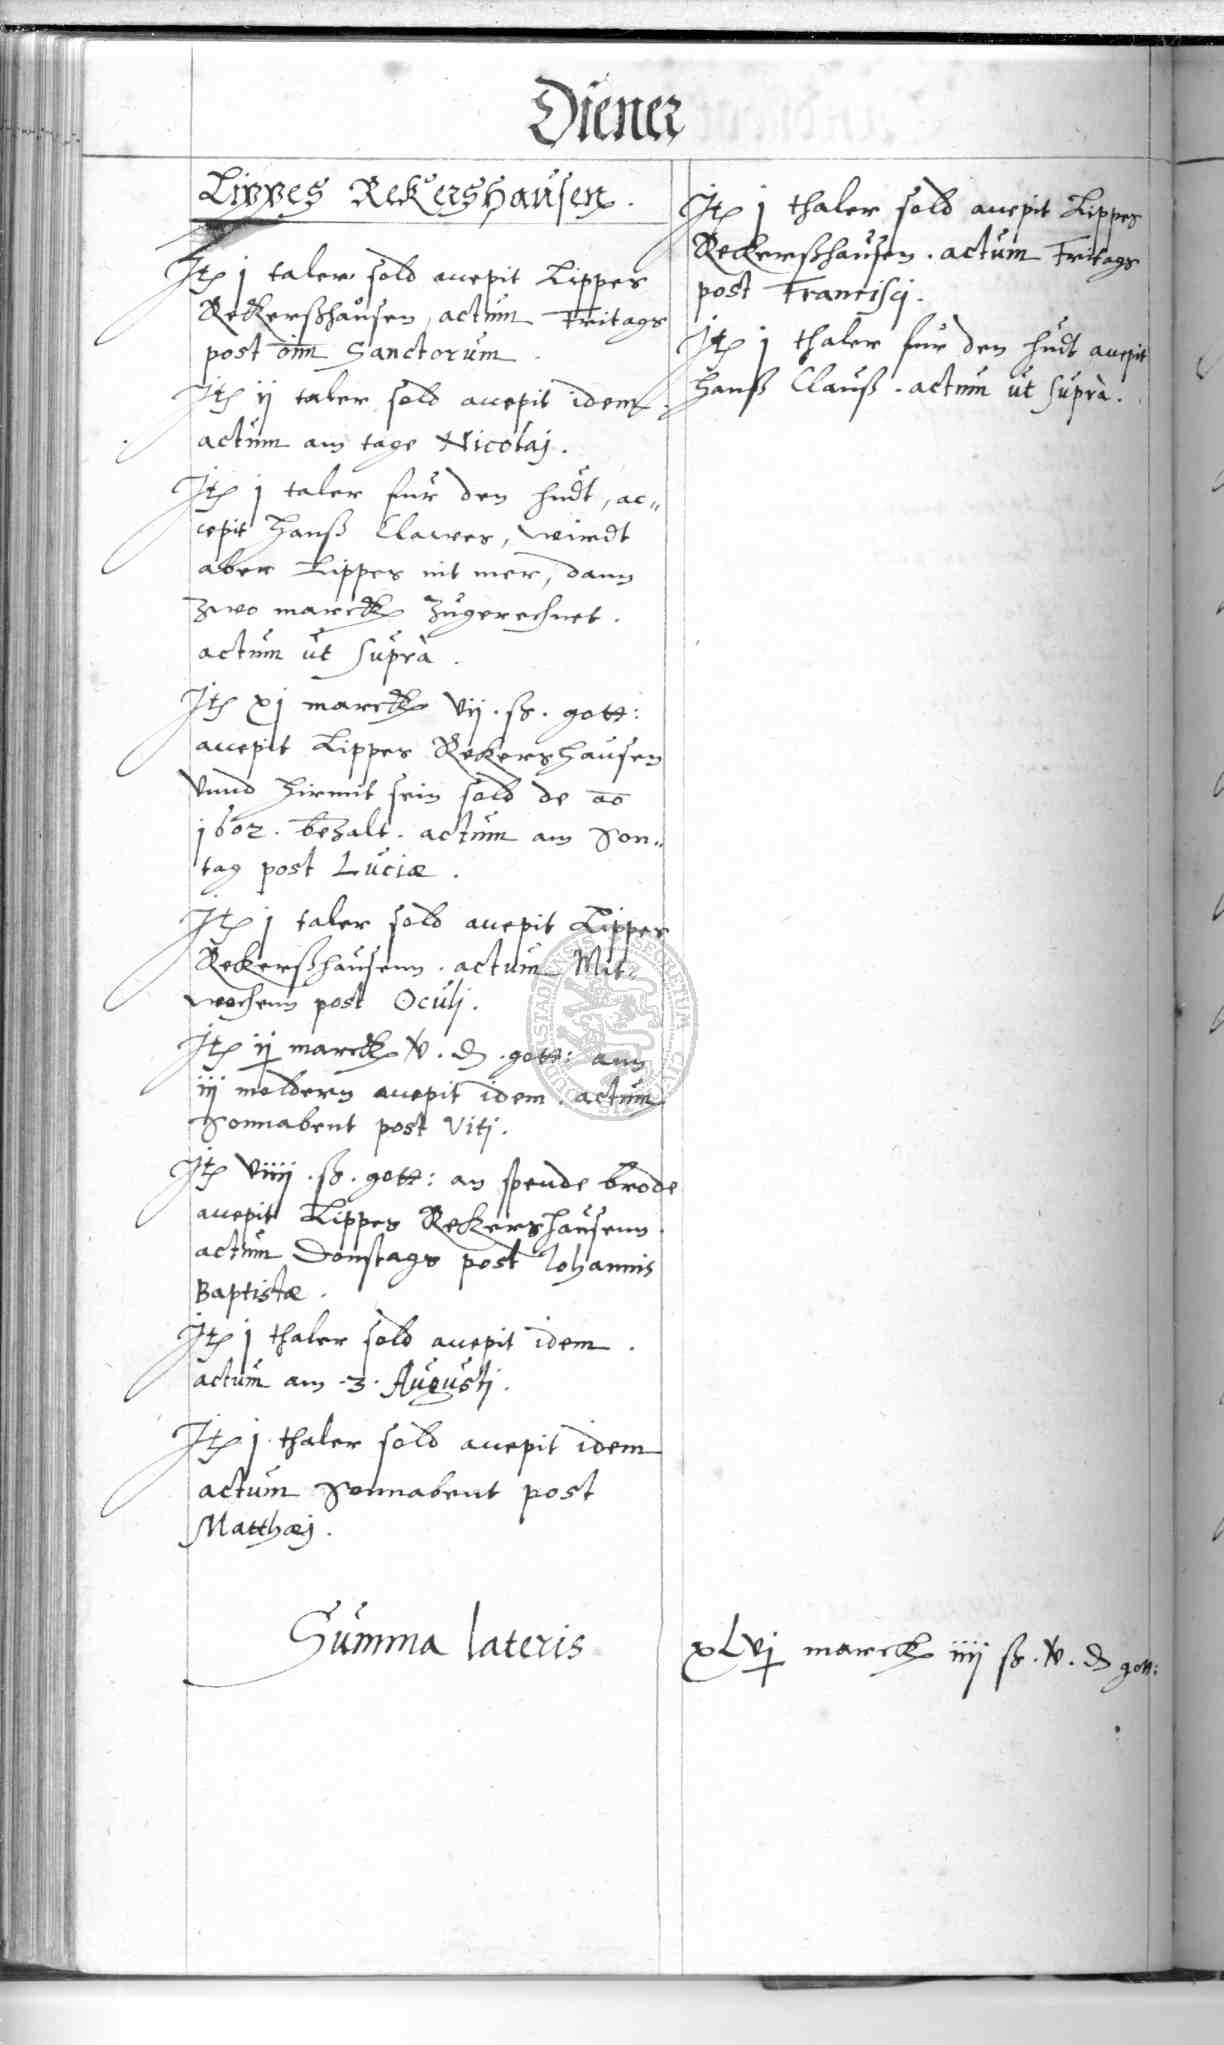 Diener
Lippes Rekershausen.
Jtem j taler sold accepit Lippes
Rekerßhausen, actum Fritags
post om̄ Sanctorum.
Jtem ij taler sold accepit idem.
actum am tage Nicolaj.
Jtem j taler fur den hudt, ac„
cepit Hanß Clawes, wirdt
aber Lippes nit mer, dann
zwo marck zugerechnet.
actum ut supra.
Jtem xj marck vij. ß. gott:
accepit Lippes Rekershausen
vnnd hirmit sein sold de ao
1602. bezalt. actum am Son„
tag post Luciæ.
Jtem j taler sold accepit Lippes
Rekerßhausenn. actum Mit„
wochenn post Oculj.
Jtem ij marck v. ₰. gott: ann
iij moldern accepit idem. actum
Sonnabent post Vitj.
Jtem viiij. ß. gott: an spende brode
accepit Lippes Rekershausenn
actum Donstags post Iohannis
Baptistæ.
Jtem j thaler sold accepit idem.
actum am .3. Augustj.
Jtem j thaler sold accepit idem
actum Sonnabent post
Matthæj.
Jtem j thaler sold accepit Lippes
Rekerßhausen. actum Fritags
post Francisci.
Jtem j thaler fur den hudt accepit
Hanß Clauß. actum ut supra.
Summa lateris
xLvj marck iiij ß. v. ₰ gott: